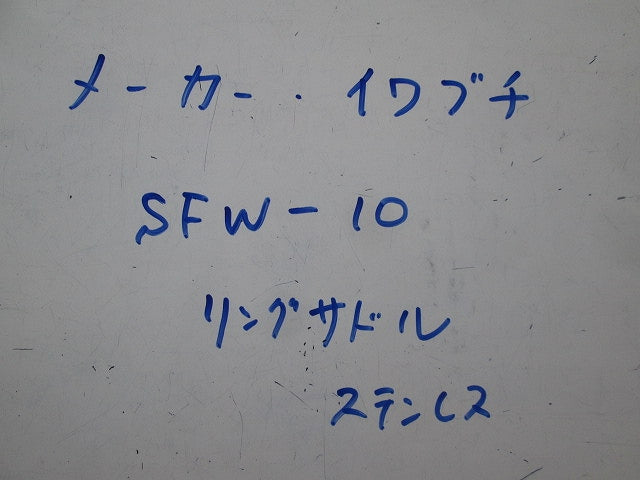 メーカー・イワブチ
SFW-10
リングサドル
ステンレス